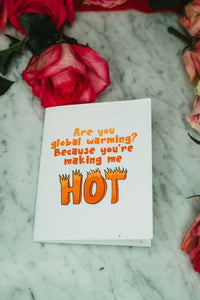 Are you
global warming?
Because you're
making me
HOT